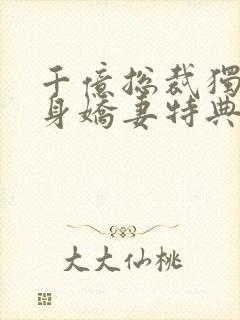 千億总裁獨
身嬌妻特典
大大仙桃